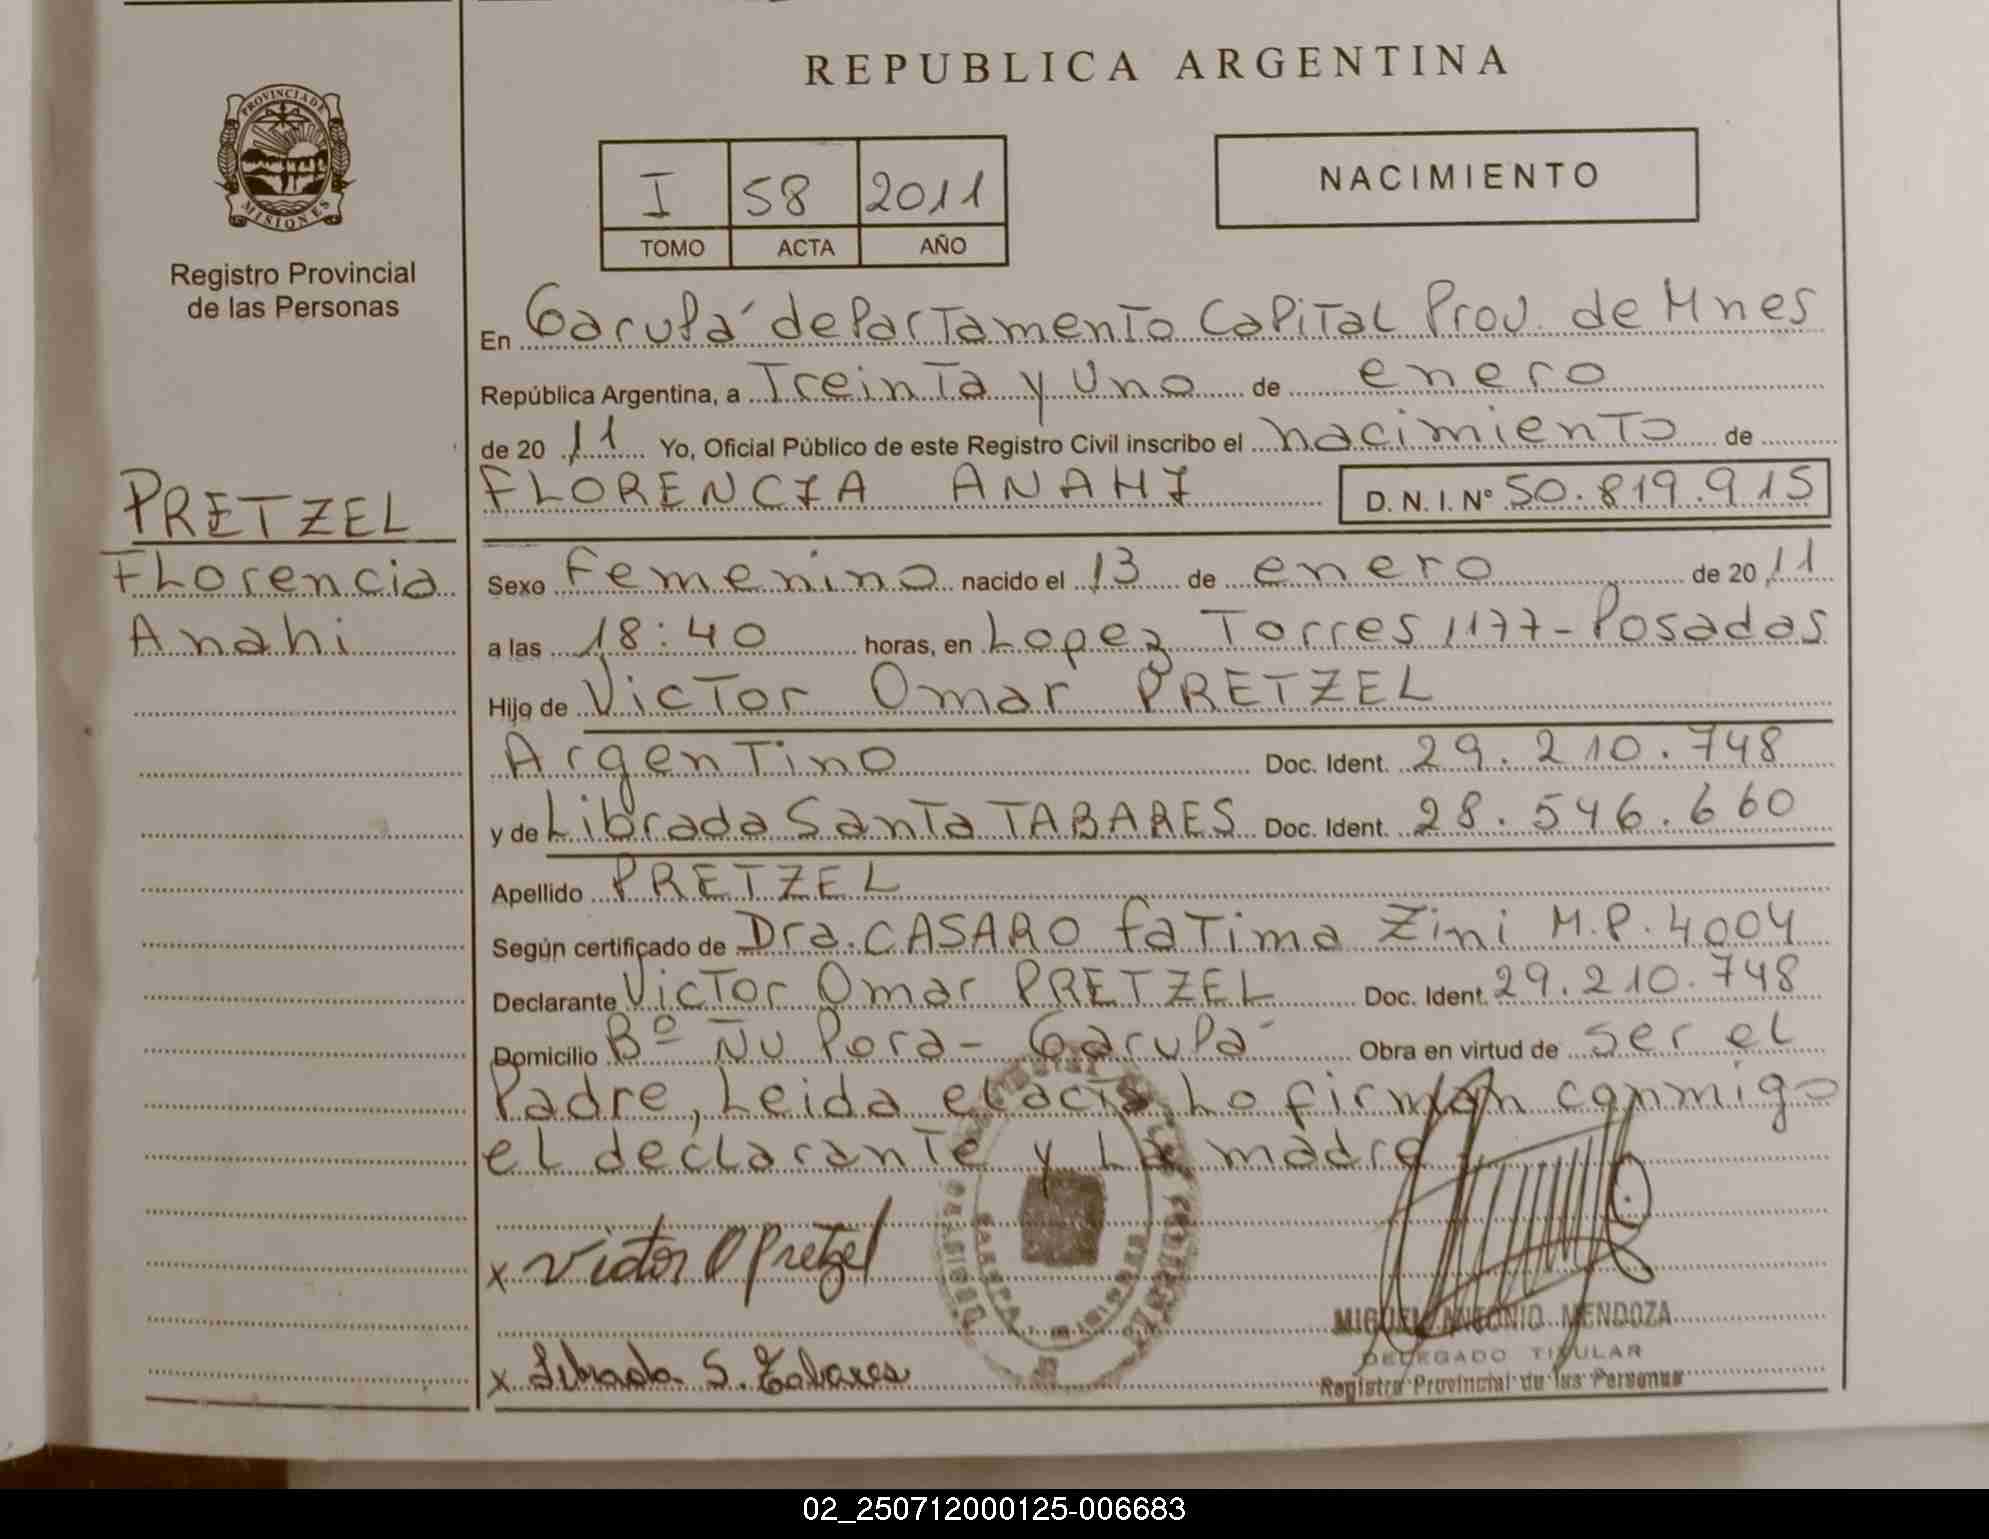 REPUBLICA ARGENTINA
PROVINCIA DE
MISIONES
Registro Provincial
de las Personas
I 58 2011
TOMO ACTA AÑO
NACIMIENTO
En Garupá departamento Capital Prov. de Mnes
República Argentina, a Treinta y Uno de enero
de 20 11 Yo, Oficial Público de este Registro Civil inscribo el nacimiento de
FLORENCIA ANAHI D. N. I. N° 50.819.915
PRETZEL
Florencia
Anahi
Sexo Femenino nacido el 13 de enero de 20 11
a las 18:40 horas, en Lopez Torres 1177 - Posadas
Hijo de Victor Omar PRETZEL
Argentino Doc. Ident. 29.210.748
y de Librada Santa TABARES Doc. Ident. 28.546.660
Apellido PRETZEL
Según certificado de Dra. CASARO fatima Zini M.P. 4004
Declarante Victor Omar PRETZEL Doc. Ident. 29.210.748
Domicilio Bº Ñu Pora - Garupá Obra en virtud de ser el
Padre, Leida el acta, Lo firman conmigo
el declarante y La madre
x Victor O Pretzel
x Librada S. Tabares
MIGUEL ANTONIO MENDOZA
DELEGADO TITULAR
Registro Provincial de las Personas
02_250712000125-006683